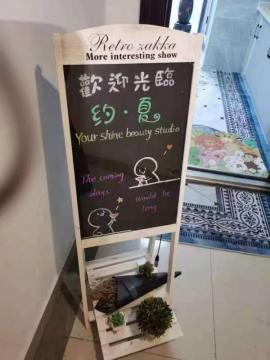 Retro zakka
More interesting show
歡迎光臨
约·夏
Your shine beauty studio
The coming
days
Would be
long